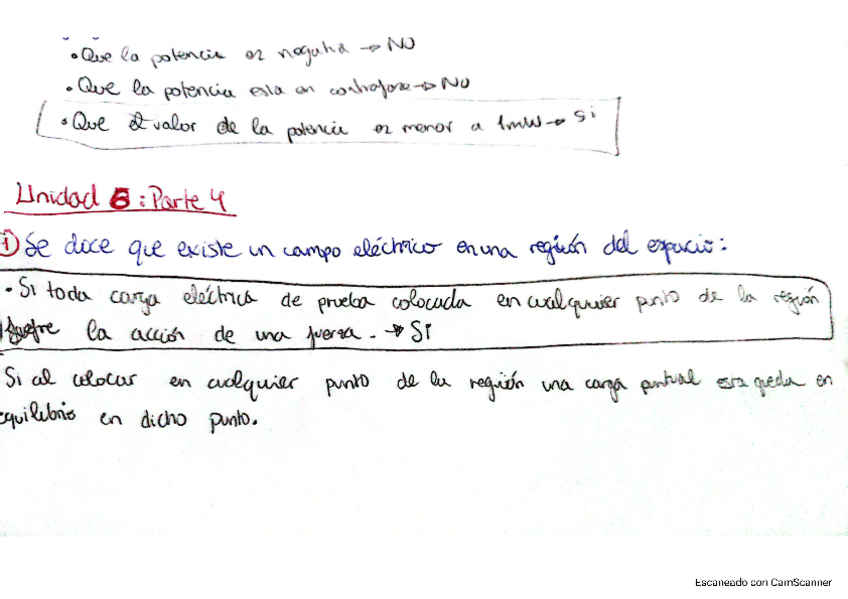 • Que la potencia es negativa → NO
• Que la potencia esta en contrafase → NO
• Que el valor de la potencia es menor a 1mW → Si
Unidad 6: Parte 4
① Se dice que existe un campo eléctrico en una región del espacio:
• Si toda carga eléctrica de prueba colocada en cualquier punto de la región
sufre la acción de una fuerza. → SI
Si al colocar en cualquier punto de la región una carga puntual esta queda en
equilibrio en dicho punto.
Escaneado con CamScanner